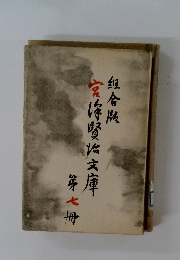 組合版
宮澤賢治文庫
第七冊